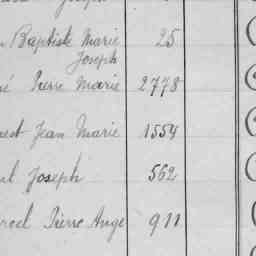 Baptiste Marie 25
Joseph
Pierre Marie 2778
Jean Marie 1554
Joseph 562
Pierre Ange 911